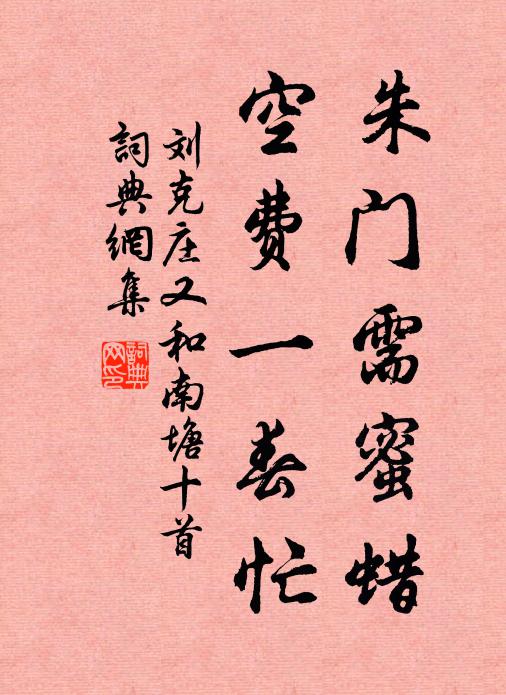 朱门需蜜蜡
空费一春忙
刘克庄又和南塘十首
词典網集
詞典网印